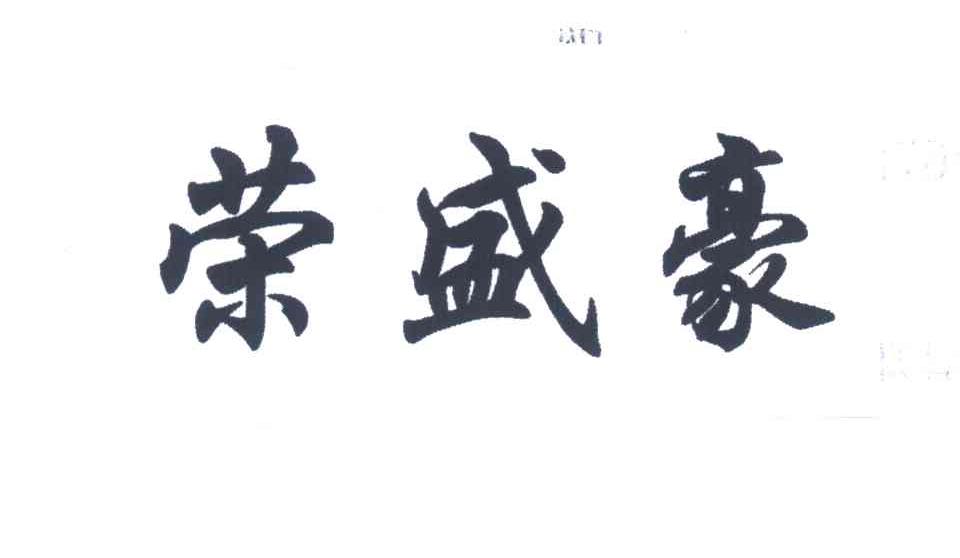 荣盛豪